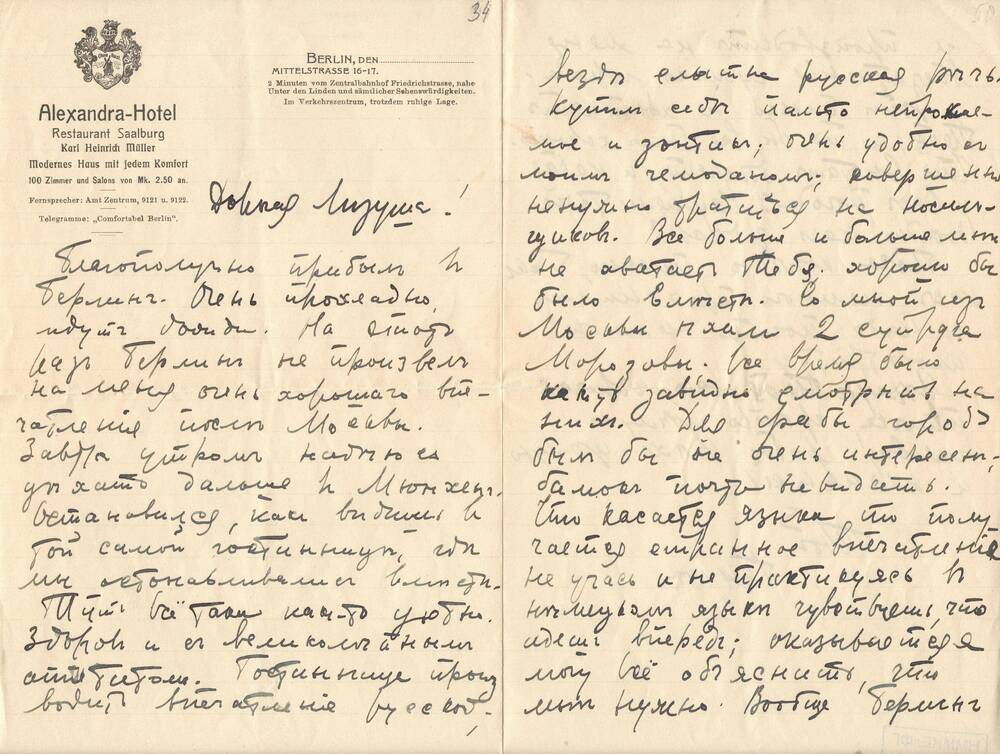 34
Alexandra-Hotel
Restaurant Saalburg
Karl Heinrich Müller
Modernes Haus mit jedem Komfort
100 Zimmer und Salons von Mk. 2.50 an.
Fernsprecher: Amt Zentrum, 9121 u. 9122.
Telegramme: „Comfortabel Berlin“.
BERLIN, DEN
MITTELSTRASSE 16-17.
2 Minuten vom Zentralbahnhof Friedrichstrasse, nahe
Unter den Linden und sämtlicher Sehenswürdigkeiten.
Im Verkehrszentrum, trotzdem ruhige Lage.
Дорогая Лизуша!
Благополучно прибылъ въ
Берлинъ. Очень прохладно,
идутъ дожди. На этотъ
разъ Берлинъ не произвелъ
на меня очень хорошаго впе-
чатленiя послѣ Москвы.
Завтра утромъ надѣюсь
уѣхать дальше въ Мюнхенъ.
Остановился, какъ видишь въ
той самой гостинницѣ, гдѣ
мы останавливались вмѣстѣ.
Тутъ всё таки какъ-то уютно.
Здоровъ и съ великолѣпнымъ
аппетитомъ. Гостинница произ
водитъ впечатленiе русской,
вездѣ слышна русская рѣчь.
Купилъ себѣ пальто непромокае-
мое и зонтикъ; очень удобно съ
моимъ чемоданомъ; совершенно
ненужно тратиться на носиль-
щиковъ. Все больше и больше мнѣ
не хватаетъ Тебя, хорошо бы
было вмѣстѣ. Со мной изъ
Москвы ѣхали 2 супруга
Морозовы. Все время было
какъ то завидно смотрѣть на
нихъ. Для тебя городъ
былъ бы очень интересенъ,
собакъ почти не видать.
Что касается языка то полу
чается странное впечатленiе
не учась и не практикуясь въ
нѣмецкомъ языкѣ чувствуешь, что
идешь впередъ; оказывается
могу всё объяснить, что
мнѣ нужно. Вообще Берлинъ